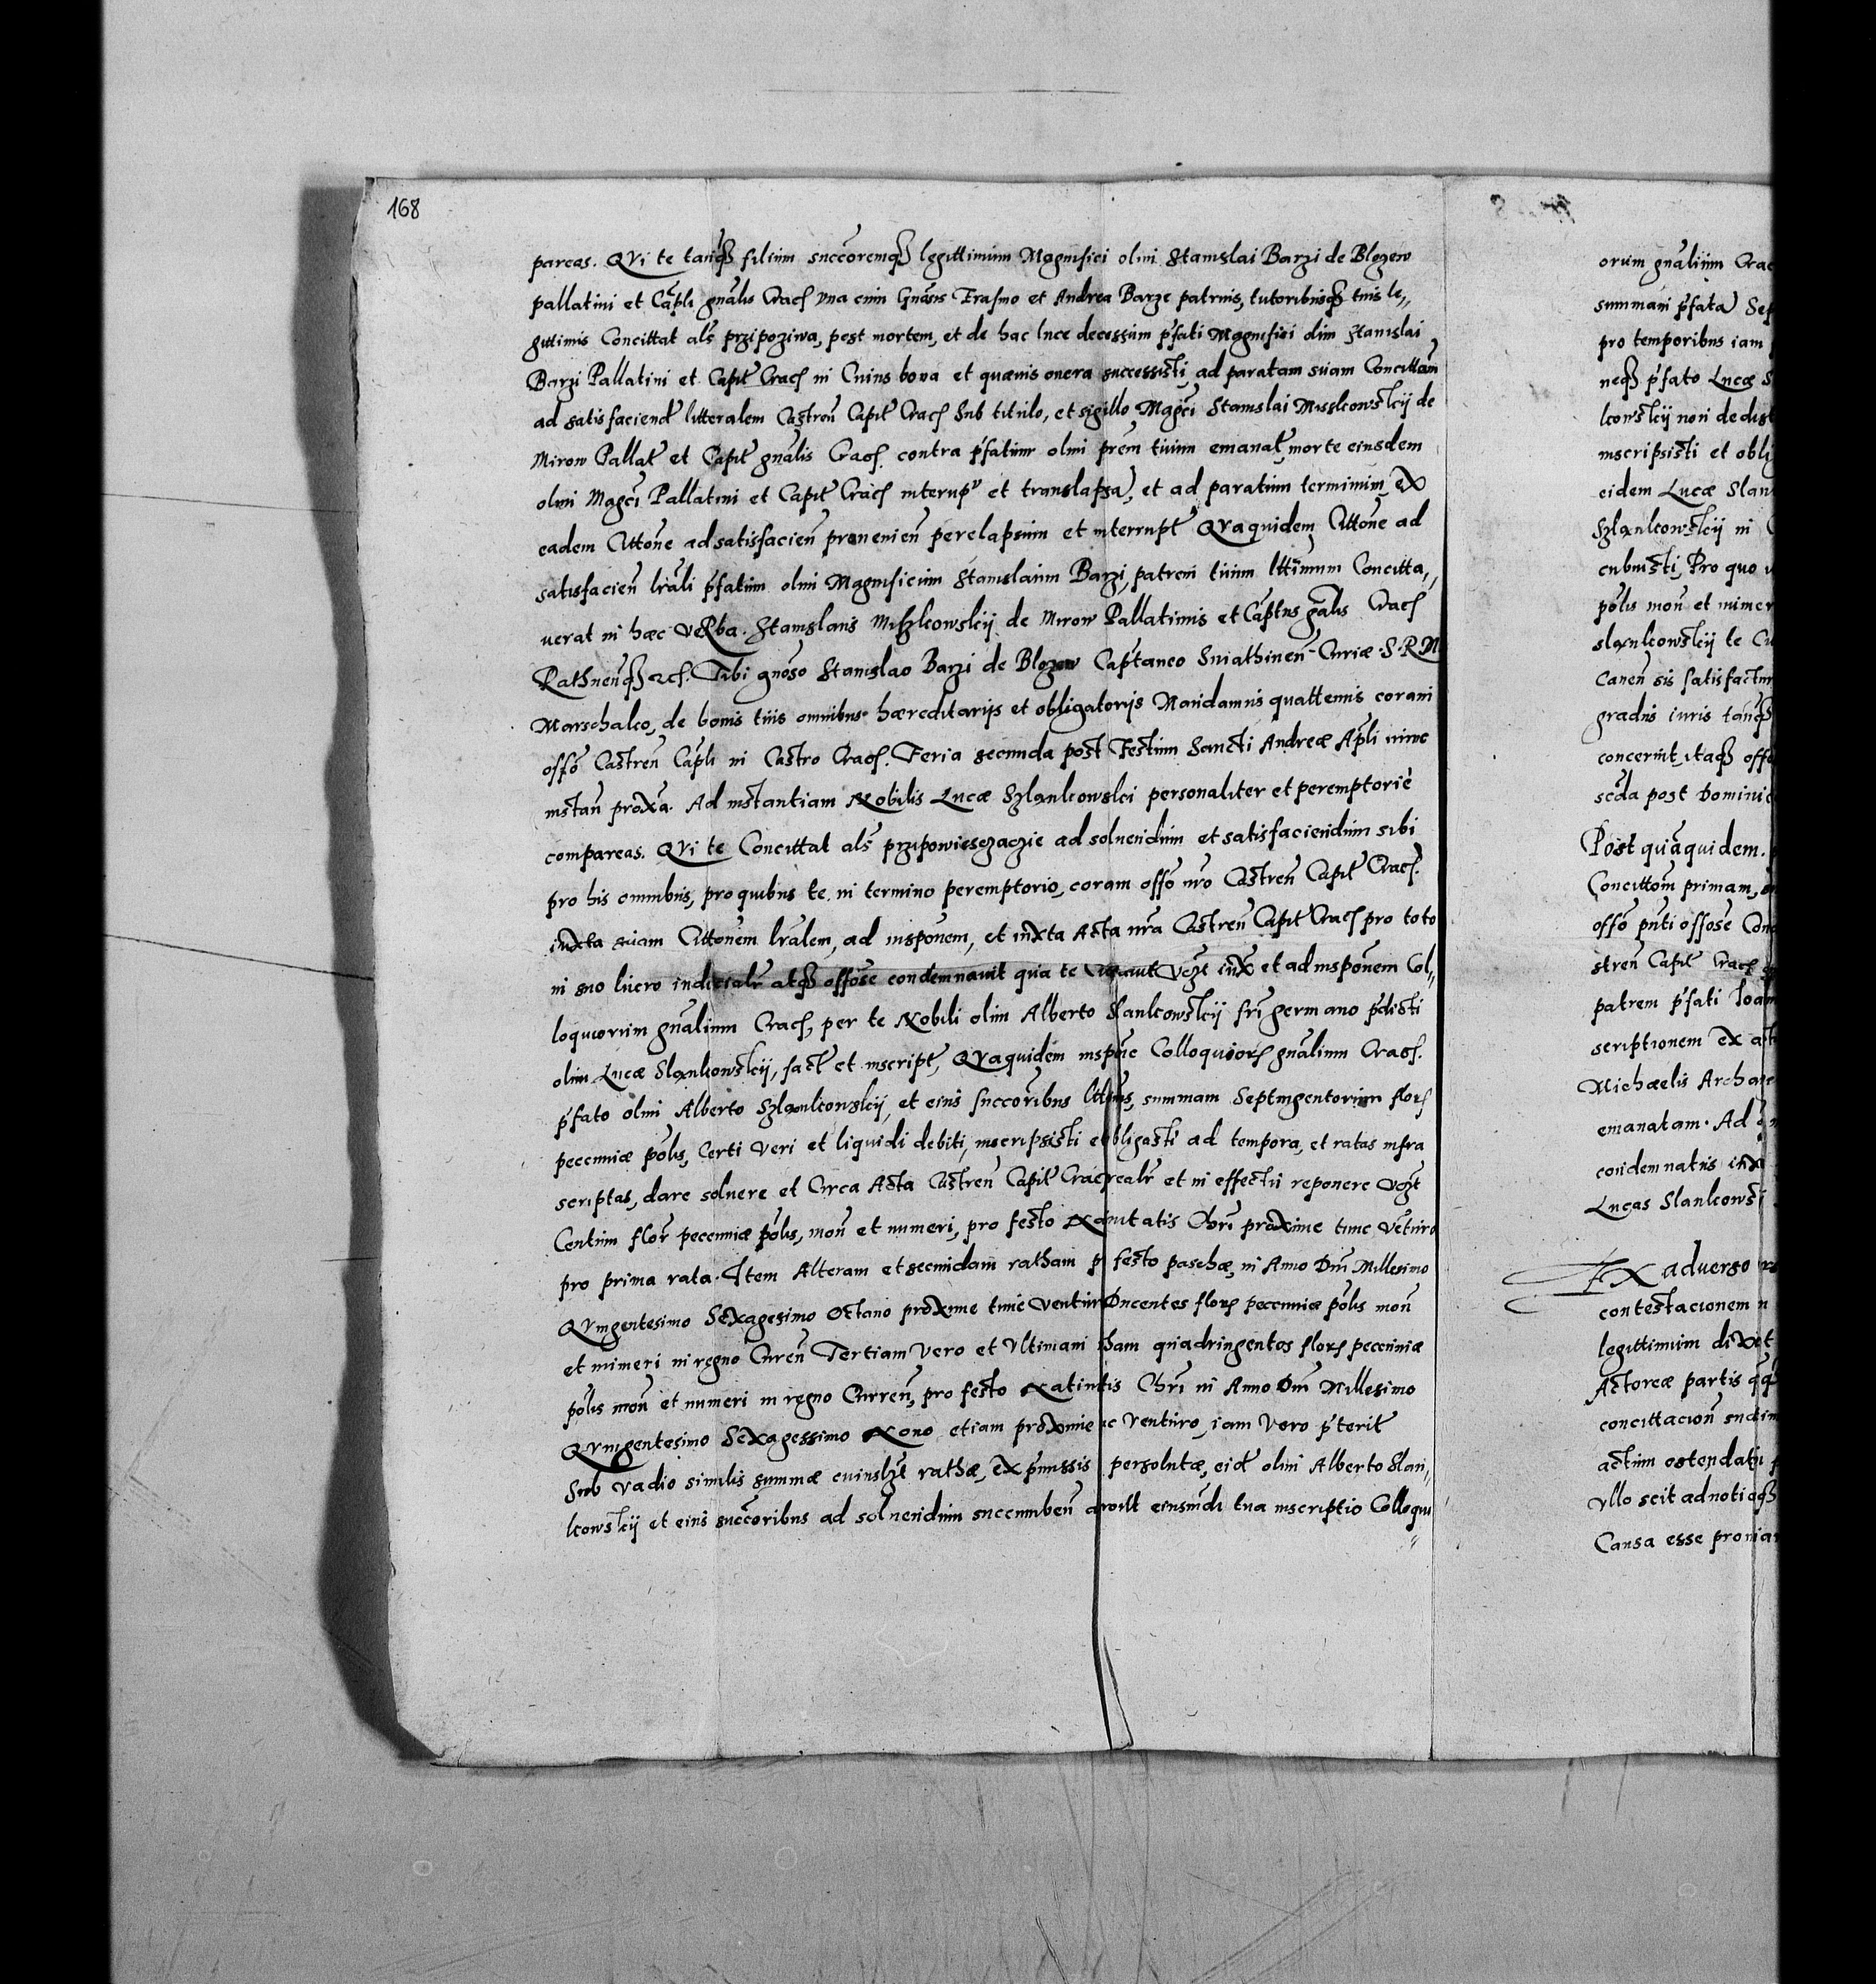 168
pareas. Qui te tanq̃ filium succõremq̃ legittimum Magnifici olim Stanislai Barzi de Blozew
pallatini et Cãpti gnãlis Crac̃ una cum Gnõsis Erasmo et Andrea Barze patruis, tutoribusq̃ tuis le„
gittimis Concittat als̃ przipoziwa, post mortem, et de hac luce decessum p̃fati Magnifici olim Stanislai
Barzi Pallatini et Capit̃ Crac̃ in Cuius bona et quævis onera successisti, ad paratam suam Concittãm
ad satisfaciend̃ litteralem Castreñ Capit̃ Crac̃ Sub titulo, et sigillo Magc̃i Stanislai Misslcowskij de
Mirow Pallat̃ et Capit̃ gnãlis Crac̃. contra p̃fatum olim prẽm tuum emanat̃, morte eiusdem
olim Magc̃i Pallatini et Capit̃ Crac̃ interup̃ et translapsa, et ad paratum terminum, ex
eadem Cittõne ad satisfacieñ provenieñ perelapsum et interrupt̃ Qvaquidem Cittõne ad
satisfacieñ lrãli p̃fatum olim Magnificum Stanislaum Barzi, patrem tuum lttĩmum Concitta„
verat in hæc verba. Stanislaus Miszkowskij de Mirow Pallatinus et Cap̃tus gñalis Crac̃
Rathneñq̃ etc̃. Tibi gnõso Stanislao Barzi de Blozew Cap̃taneo Sniathineñ Curiæ S. R. M
Marschalco, de bonis tuis omnibus hæreditarijs et obligatorijs Mandamus quattenus coram
offõ Castreñ Cap̃li in Castro Crac̃. Feria secunda post Festum Sancti Andreæ Ap̃li nunc
instañ proxa. Ad instantiam Nobilis Lucæ Szlankowski personaliter et peremptoriè
compareas. Qui te Concittat als̃ przipowiesczaczie ad solvendum et satisfaciendum sibi
pro his omnibus, pro quibus te in termino peremptorio, coram offõ nrõ Castreñ Capit̃ Crac̃.
iuxta suam Cittõnem lrãlem, ad inspõnem, et iuxta Acta nrã Castreñ Capit̃ Crac̃ pro toto
in suo lucro iudicialr̃ atq̃ offõse condemnavit quia te Citavit videlt̃ iux̃ et ad inspõnem Col„
loquiorum gnãlium Crac̃, per te Nobili olim Alberto Slankowskij frĩ germano p̃dicti
olim Lucæ Slankowskij, fact̃ et inscript̃, Qvaquidem inspõne Colloquior̃ gnãlium Crac̃.
p̃fato olim Alberto Szlankowskij, et eius succorĩbus lttĩmis, summam Septingentorum flor̃
pecuniæ põlis, Certi veri et liquidi debiti, inscripsisti obligasti ad tempora, et ratas infra
scriptas, dare solvere et Circa Acta Castreñ Capit̃ Crac̃ realr̃ et in effectu reponere videlt̃
Centum flor̃ pecuniæ põlis, moñ et numeri, pro festo Nativitatis Chrĩ proxime tunc venturo
pro prima rata. Item Alteram et secundam ratham p̃ festo paschæ, in Anno Dnĩ Millesimo
Qvingentesimo Sexagesimo Octavo proxime tunc ventur Ducentos flor̃ pecuniæ põlis moñ
et numeri in regno Cureñ Tertiam vero et Ultimam tham quadringentos flor̃ pecuniæ
põlis moñ et numeri in regno Curreñ, pro festo Nativitis Chrĩ in Anno Dnĩ Millesimo
Qvingentesimo Sexagessimo Nono etiam proxime c venturo, iam vero p̃terit̃
Sub vadio similis summæ cuiuslib̃t rathæ, ex p̃missis persolutæ, eid̃ olim Alberto Slan„
kowskij et eius succõribus ad solvendum succumbeñ eiusmdĩ tua inscriptio Colloqui
„
orum gnãlium Crac
summam p̃fata Sep
pro temporibus iam
neq̃ p̃fato Lucæ S
kowskij non dedist
inscripsisti et obli
eidem Lucæ Slan
Szlankowskij in
cubuisti, Pro quo
põlis moñ et numer
slankowskij te
Caneñ sis satisfactur
gradus iuris tanq̃
concernit, itaq̃ offõ
scd̃a post Dominic
Post quãquidem.
Concittõm primam,
offõ pñti offõse Con
streñ Capit̃ Crac̃
patrem p̃fati Ioan
scriptionem ex act
Michaelis Archa
emanatam. Ad
condemnatus iuxa
Lucas Slankowsi
Ex adverso
contestacionem
legittimum
Actoreæ partis
concittacioñ
actum ostendat
ullo scit ad notioq̃
Causa esse